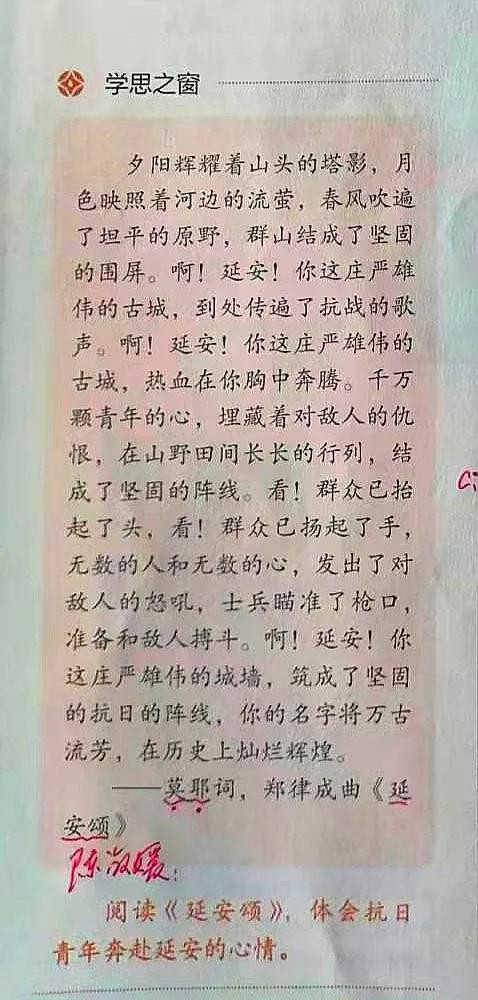 学思之窗
夕阳辉耀着山头的塔影，月
色映照着河边的流萤，春风吹遍
了坦平的原野，群山结成了坚固
的围屏。啊！延安！你这庄严雄
伟的古城，到处传遍了抗战的歌
声。啊！延安！你这庄严雄伟的
古城，热血在你胸中奔腾。千万
颗青年的心，埋藏着对敌人的仇
恨，在山野田间长长的行列，结
成了坚固的阵线。看！群众已抬
起了头，看！群众已扬起了手，
无数的人和无数的心，发出了对
敌人的怒吼，士兵瞄准了枪口，
准备和敌人搏斗。啊！延安！你
这庄严雄伟的城墙，筑成了坚固
的抗日的阵线，你的名字将万古
流芳，在历史上灿烂辉煌。
——莫耶词，郑律成曲《延
安颂》
陈淑媛：
阅读《延安颂》，体会抗日
青年奔赴延安的心情。